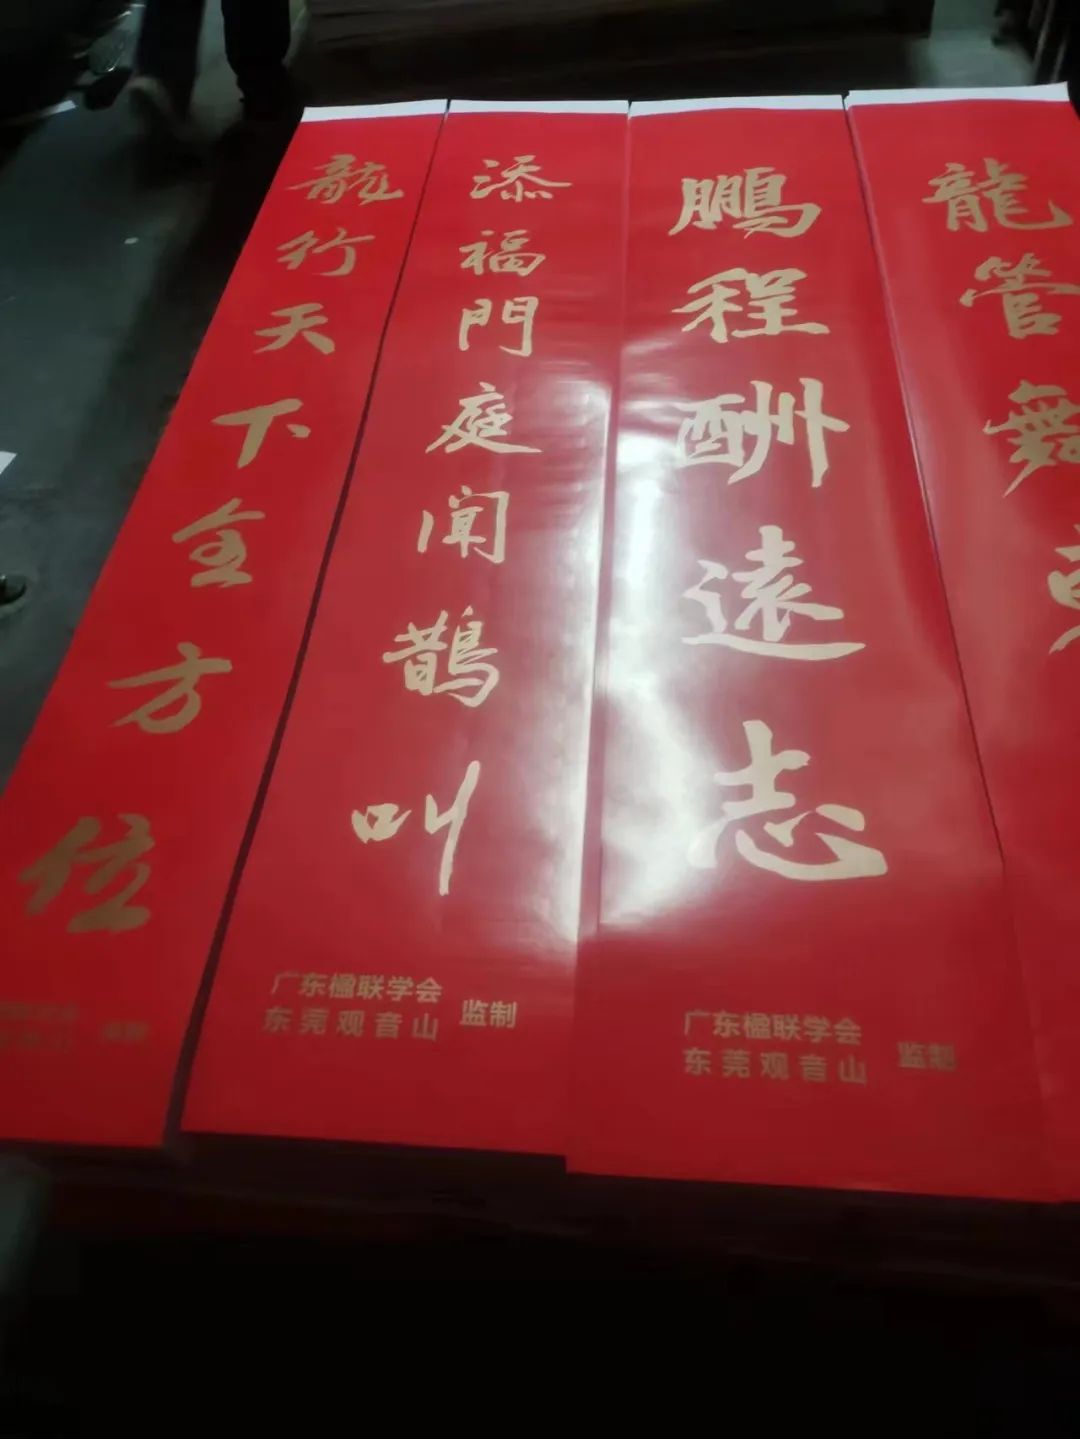 龍行天下全方位
添福門庭闻鹊叫
广东楹联学会
东莞观音山
监制
鵬程酬遠志
广东楹联学会
东莞观音山
监制
龍管舞